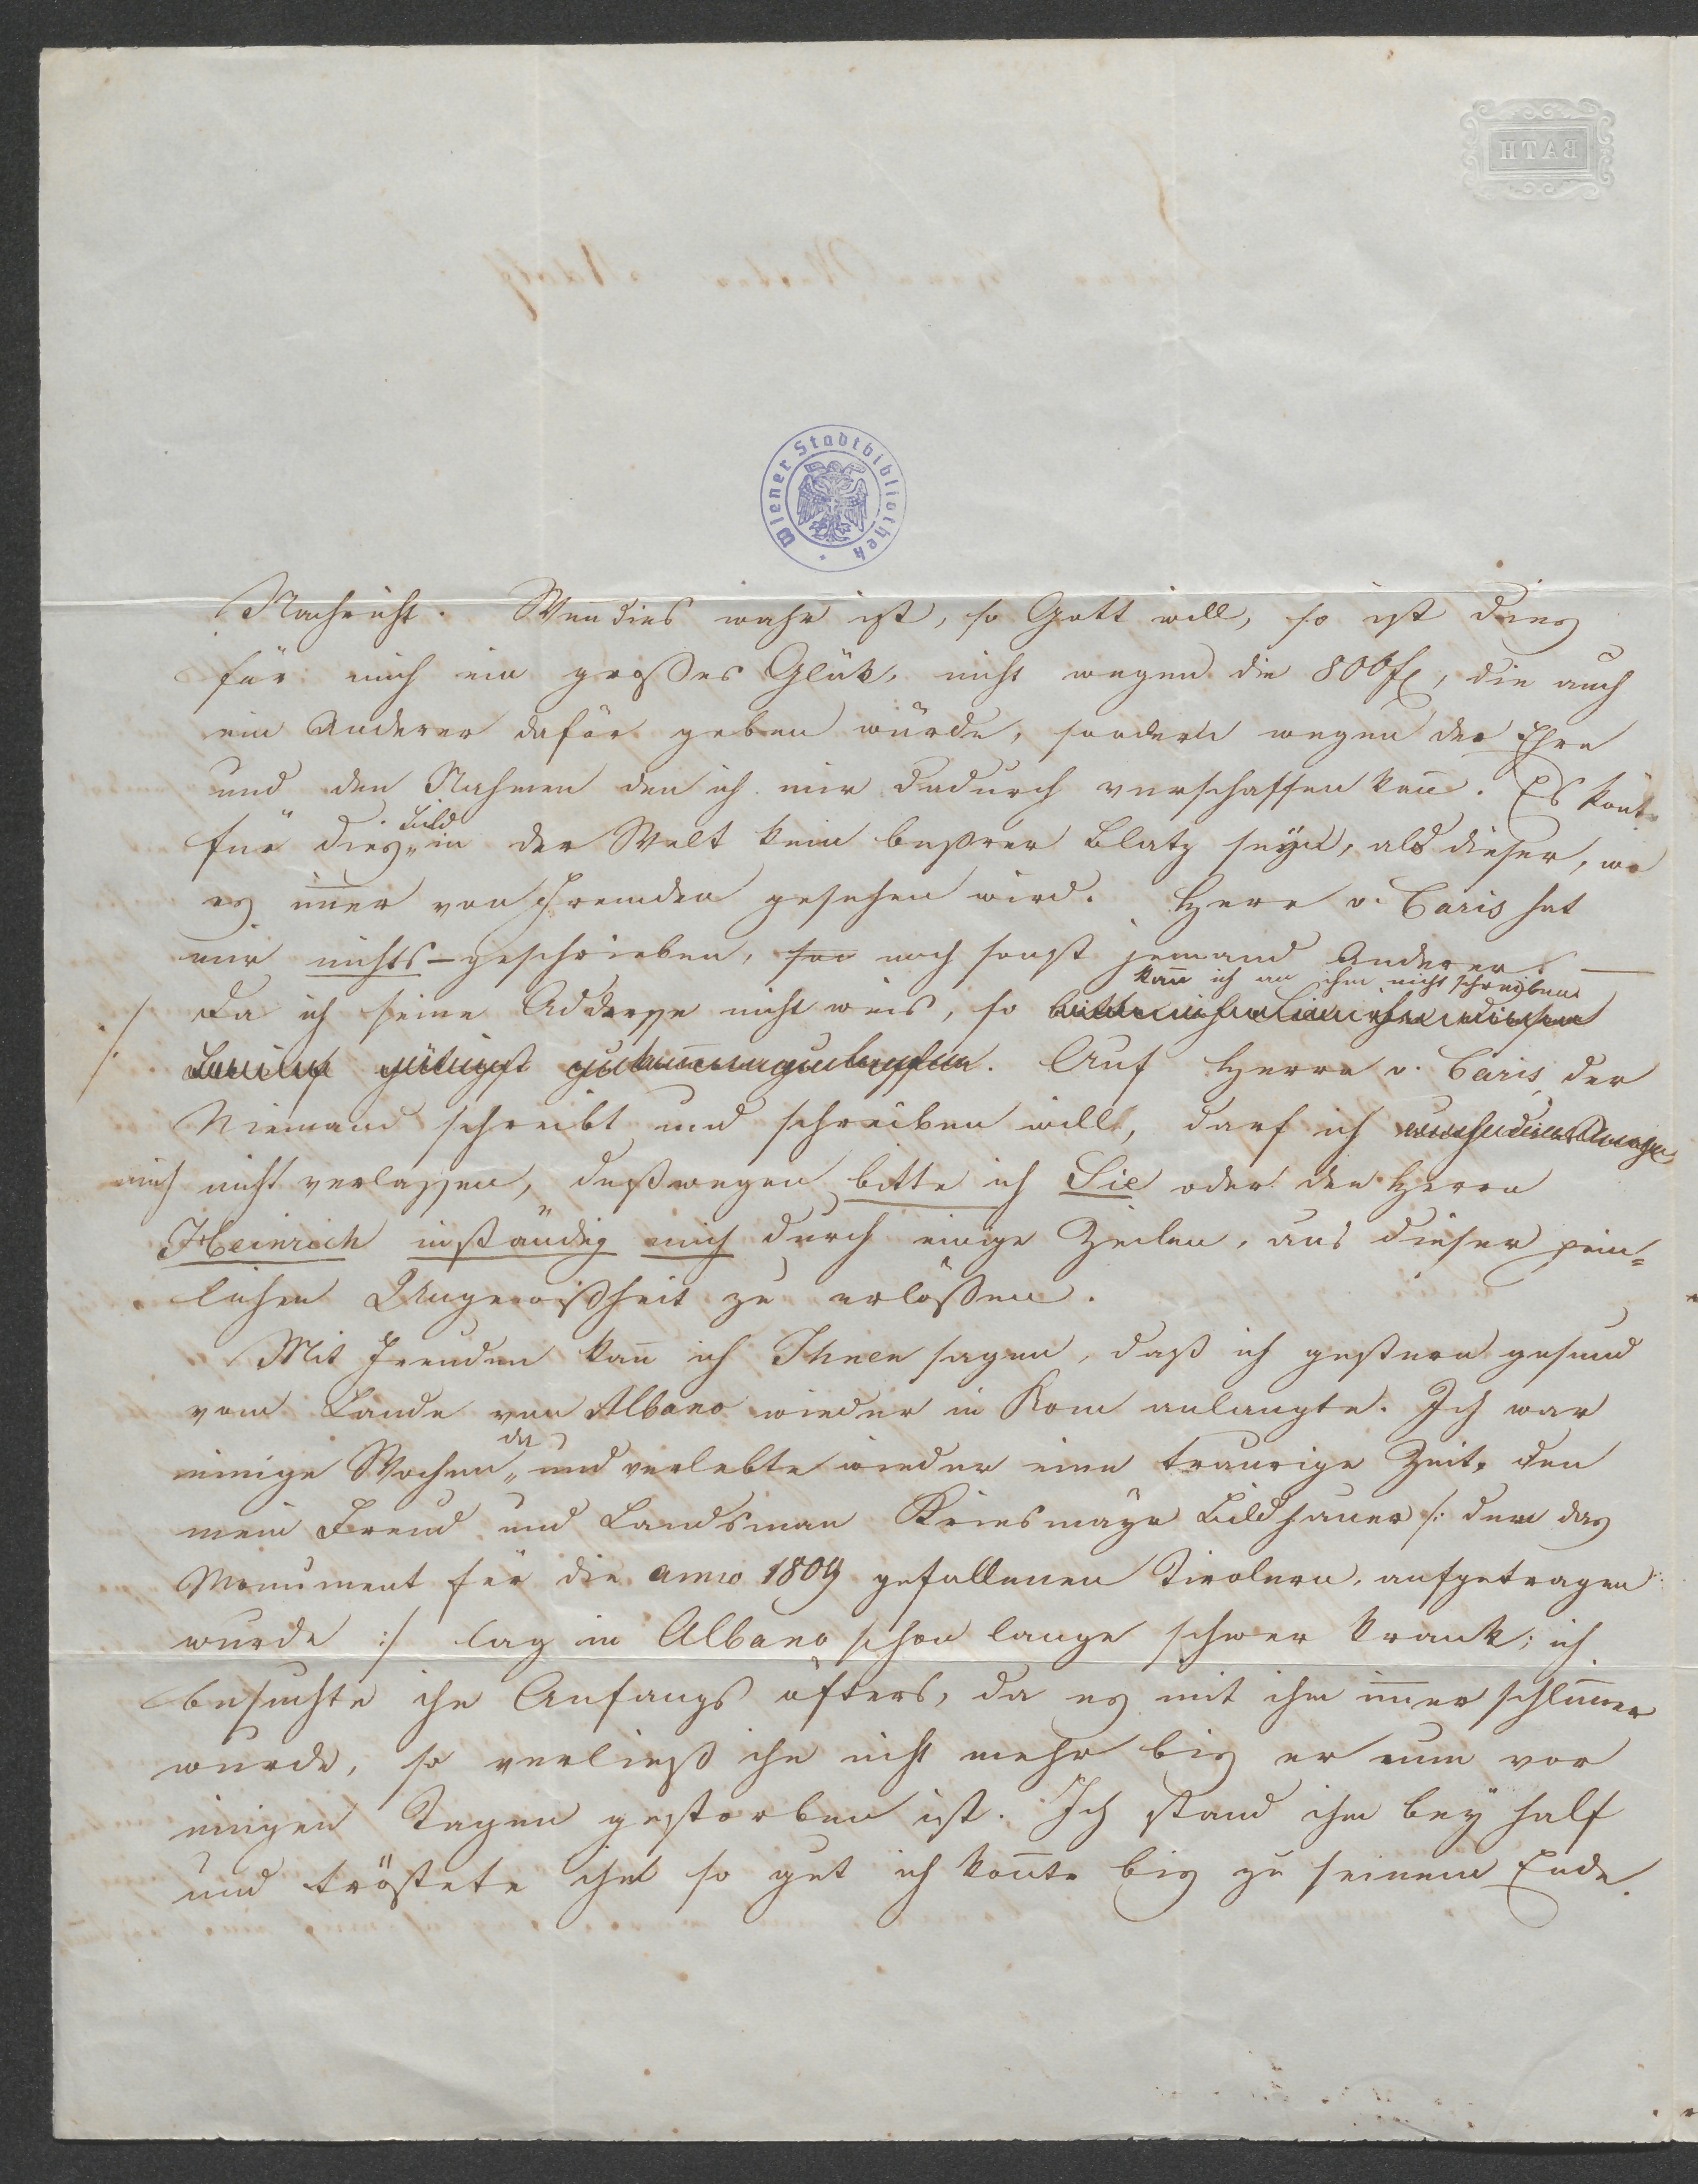 BATH
Wiener Stadtbibliothek
Nachricht. Wen̄ dies wahr ist, so Gott will, so ist dies
für mich ein großes Glük, nicht wegen die 800 fl, die auch
ein Anderer dafür geben würde, sondern wegen der Ehre
und den Nahmen den ich mir dadurch verschaffen kan̄. Es könte
für dies Bild in der Welt kein beßrer Blatz seyn, als dieser, wo
es im̄er von Fremden gesehen wird. Herr v. Caris hat
mir nichts geschrieben, noch sonst jemand Anderer. —
kan̄ ich an ihm nicht schreiben
Da ich seine Addresse nicht weis, so
gütigst zukom̄en zu lassen. Auf Herrn v. Caris der
Niemand schreibt und schreiben will, darf ich
mich nicht verlassen, deßwegen bitte ich Sie oder den Herrn
Heinrich inständig mich durch einige Zeilen, aus dieser pein=
lichen Ungewißheit zu erlößen.
Mit Freuden kan̄ ich Ihnen sagen, daß ich gestern gesund
vom Lande von Albano wieder in Rom anlangte. Ich war
einige Wochen da und verlebte wieder eine traurige Zeit, den
mein Freund und Landsman Kriesmayr Bildhauer /: dem das
Monument für die anno 1809 gefallenen Tirolern, aufgetragen
wurde :/ lag in Albano schon lange schwer krank; ich
besuchte ihn Anfangs öfters, da es mit ihm im̄er schlim̄er
wurde, so verließ ihn nicht mehr bis er nun vor
einigen Tagen gestorben ist. Ich stand ihm bey half
und tröstete ihn so gut ich kon̄te bis zu seinem Ende.